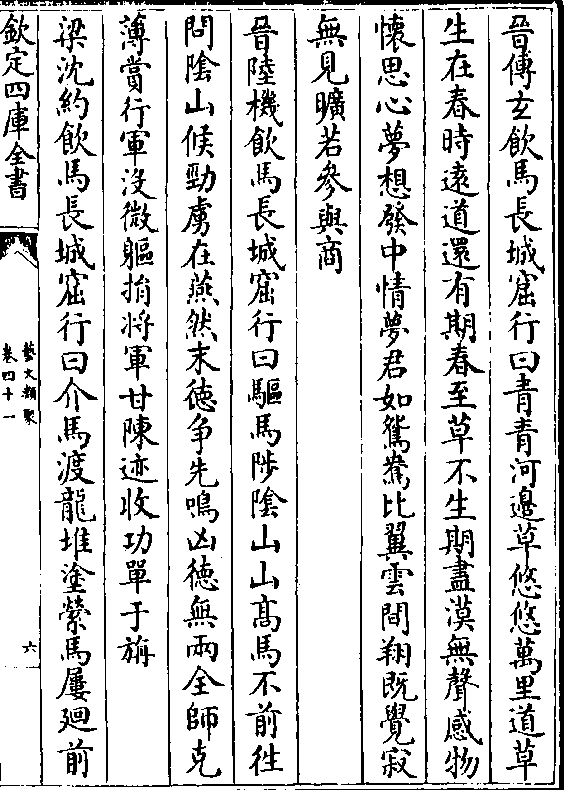 晉傅玄飲馬長城窟行曰青青河邊草悠悠萬里道草
生在春時遠道還有期春至草不生期盡漠無聲感物
懷思心夢想發中情夢君如鴛鴦比翼雲間翔既覺寂
無見曠若參與商
晉陸機飲馬長城窟行曰驅馬陟陰山山髙馬不前徃
問陰山候勁虜在燕然末徳争先鳴凶徳無兩全師克
薄賞行軍没微軀捐将軍甘陳迹收功單于旃
梁沈約飲馬長城窟行曰介馬渡龍堆塗縈馬屢迴前
欽定四庫全書
藝文類聚
卷四十一
六